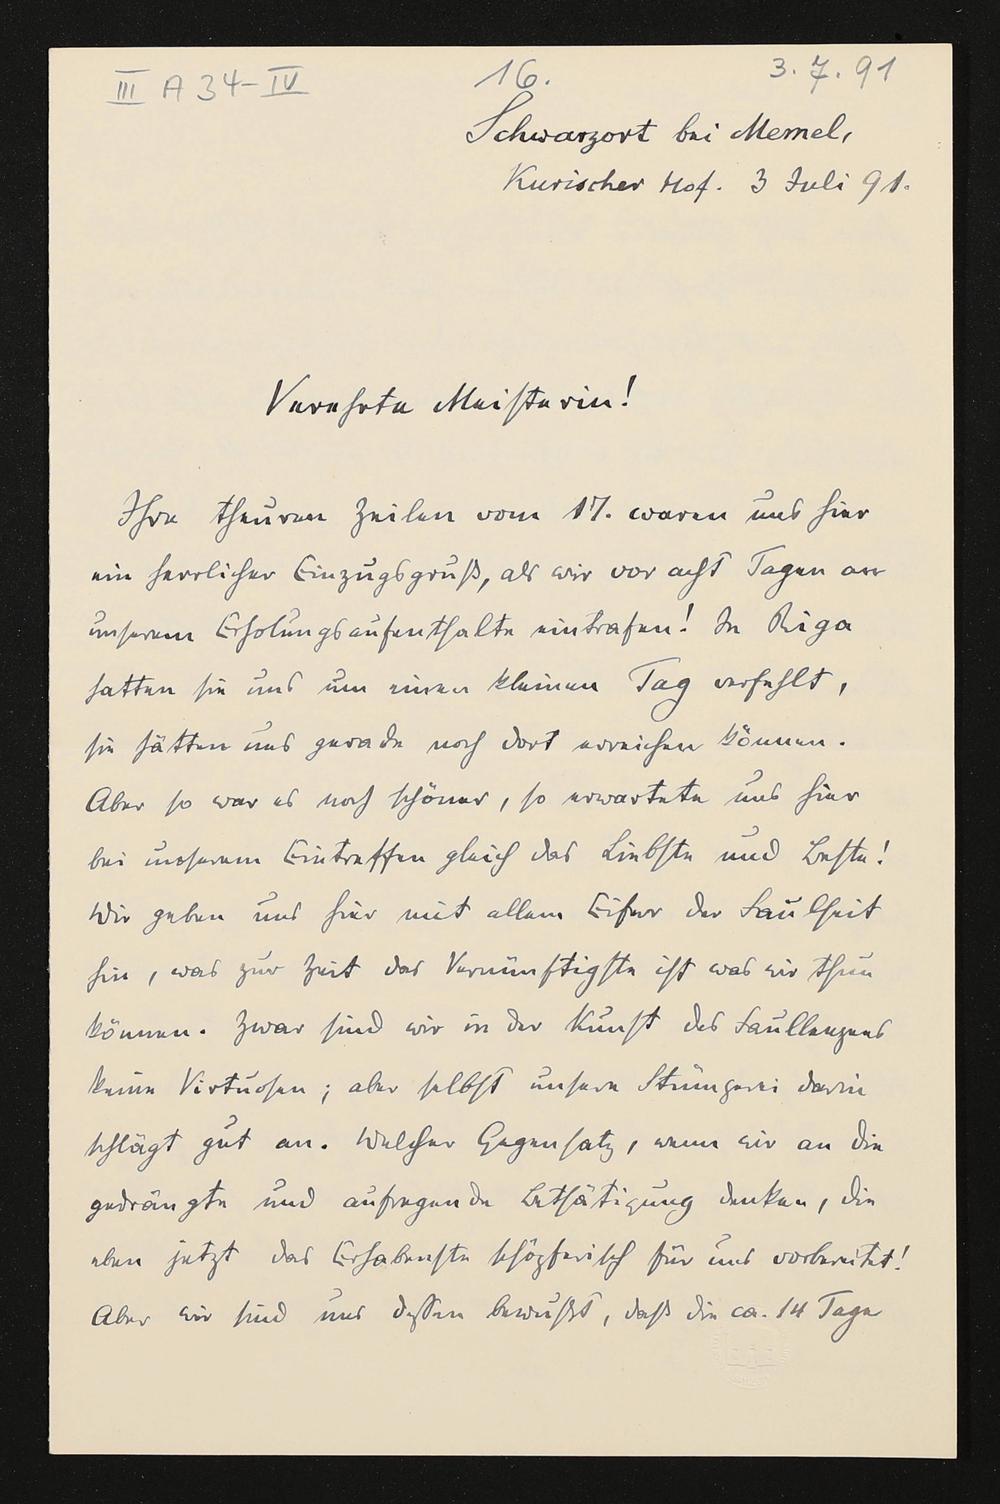 III A 34-IV
16.
3.7.91
Schwarzort bei Memel,
Kurischer Hof. 3 Juli 91.
Verehrte Meisterin!
Ihre theuren Zeilen vom 17. waren uns hier
ein herrlicher Einzugsgruß, als wir vor acht Tagen an
unserem Erholungsaufenthalte eintrafen! In Riga
hatten sie uns um einen kleinen Tag verfehlt,
sie hätten uns gerade noch dort erreichen können.
Aber so war es noch schöner, so erwartete uns hier
bei unserem Eintreffen gleich das Liebste und Beste!
Wir geben uns hier mit allem Eifer der Faulheit
hin, was zur Zeit das Vernünftigste ist was wir thun
können. Zwar sind wir in der Kunst des Faullenzens
keine Virtuosen; aber selbst unsere Stümperei darin
schlägt gut an. Welcher Gegensatz, wenn wir an die
gedrängte und aufregende Bethätigung denken, die
eben jetzt das Erhabenste schöpferisch für uns vorbereitet!
Aber wir sind uns dessen bewußt, daß die ca. 14 Tage